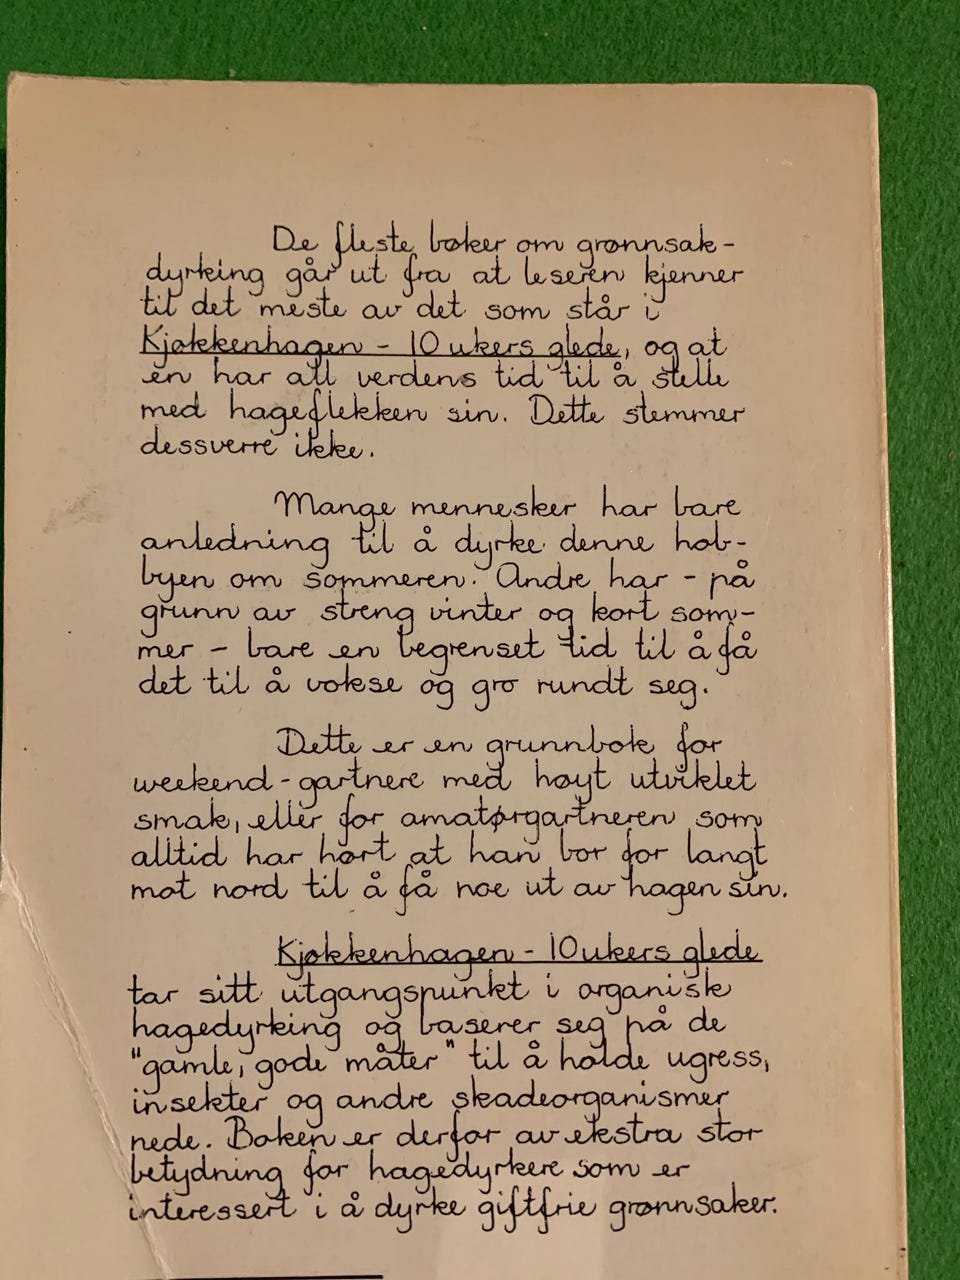 De fleste bøker om grønnsak-
dyrking går ut fra at leseren kjenner
til det meste av det som står i
Kjøkkenhagen - 10 ukers glede, og at
en har all verdens tid til å stelle
med hageflekken sin. Dette stemmer
dessverre ikke.
Mange mennesker har bare
anledning til å dyrke denne hob-
byen om sommeren. Andre har - på
grunn av streng vinter og kort som-
mer - bare en begrenset tid til å få
det til å vokse og gro rundt seg.
Dette er en grunnbok for
weekend-gartnere med høyt utviklet
smak, eller for amatørgartneren som
alltid har hørt at han bor for langt
mot nord til å få noe ut av hagen sin.
Kjøkkenhagen - 10 ukers glede
tar sitt utgangspunkt i organisk
hagedyrking og baserer seg på de
"gamle, gode måter" til å holde ugress,
insekter og andre skadeorganismer
nede. Boken er derfor av ekstra stor
betydning for hagedyrkere som er
interessert i å dyrke giftfrie grønnsaker.